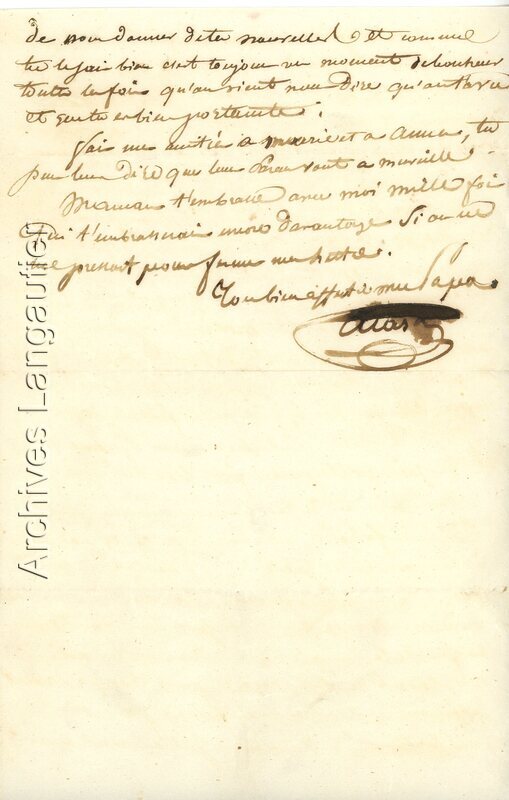 de nous donner de tes nouvelles et comme
tu le sai bien c'est toujour un moment de bonheur
toutes les fois qu'on vient nous dire qu'on t'a vu
et que tu es bien portante.
fais mes amitiés a marie et a Anna, tu
peu leur dire que leur Parau vont a merveille
Maman t'embrasse avec moi mille foi
qui t'embrasserai encore davantage si on ne
me pressait pour fermer ma lettre.
Ton bien affectionné Papa.
Archives Langautier